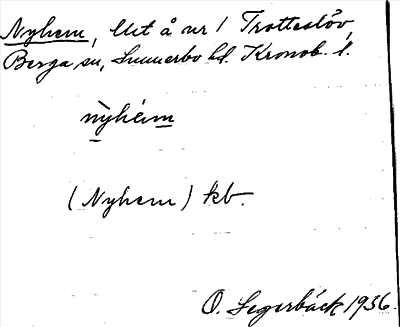 Nyhem, lht å nr 1 Trotteslöv,
Berga sn, Sunnerbo hd. Kronob. l.
nỳhém
(Nyhem) kb.
O. Segerbäck 1936.